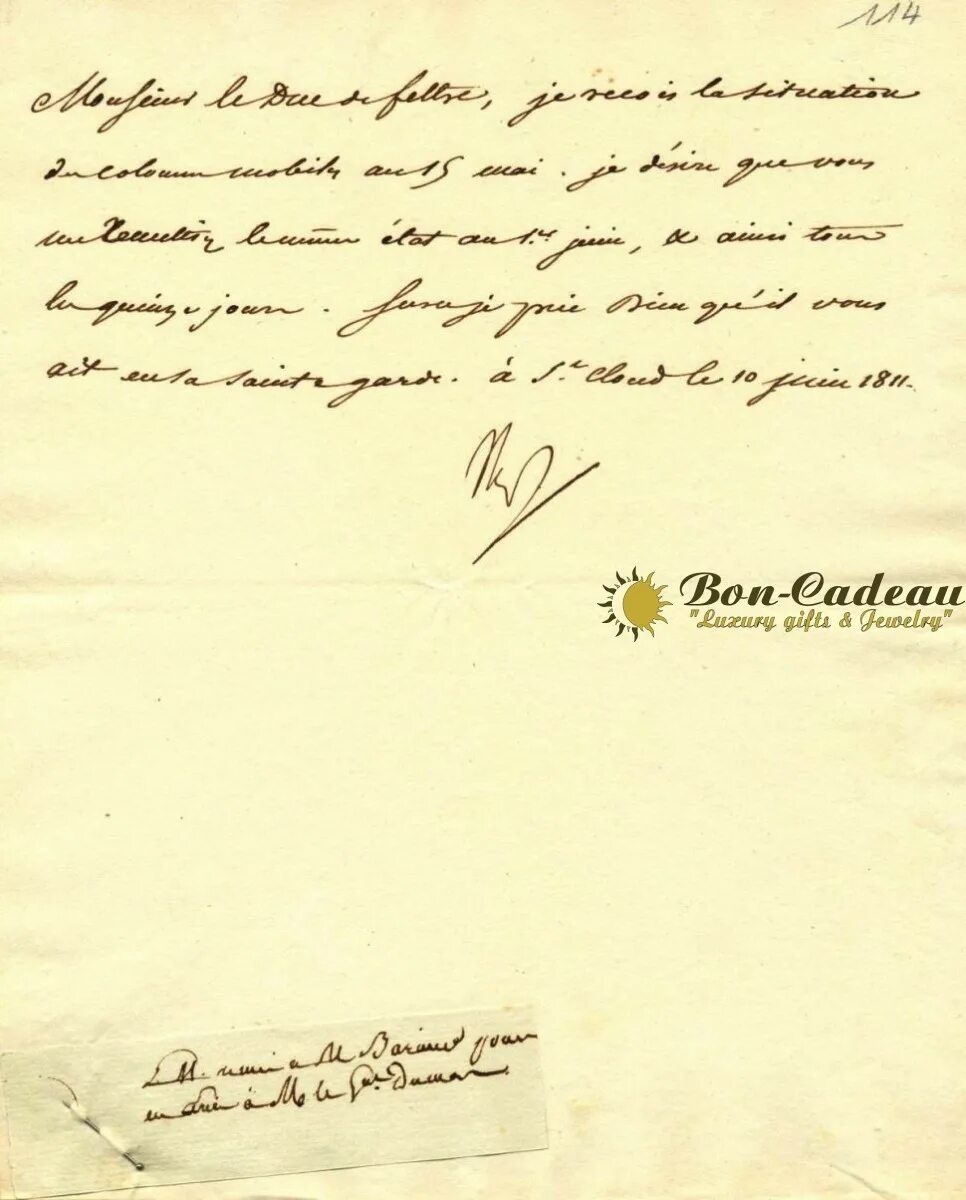 114
Monsieur le Duc de feltre, je recois la situation
des colonnes mobiles au 15 mai. je désire que vous
me remettiez le même état au 1.er juin, & ainsi tous
les quinze jours. Sur ce je prie Dieu qu'il vous
ait en sa sainte garde. à St. Cloud le 10 juin 1811.
Np
Bon-Cadeau
"Luxury gifts & Jewelry"
remis à M Barnier pour
à M le Gal. Dumas